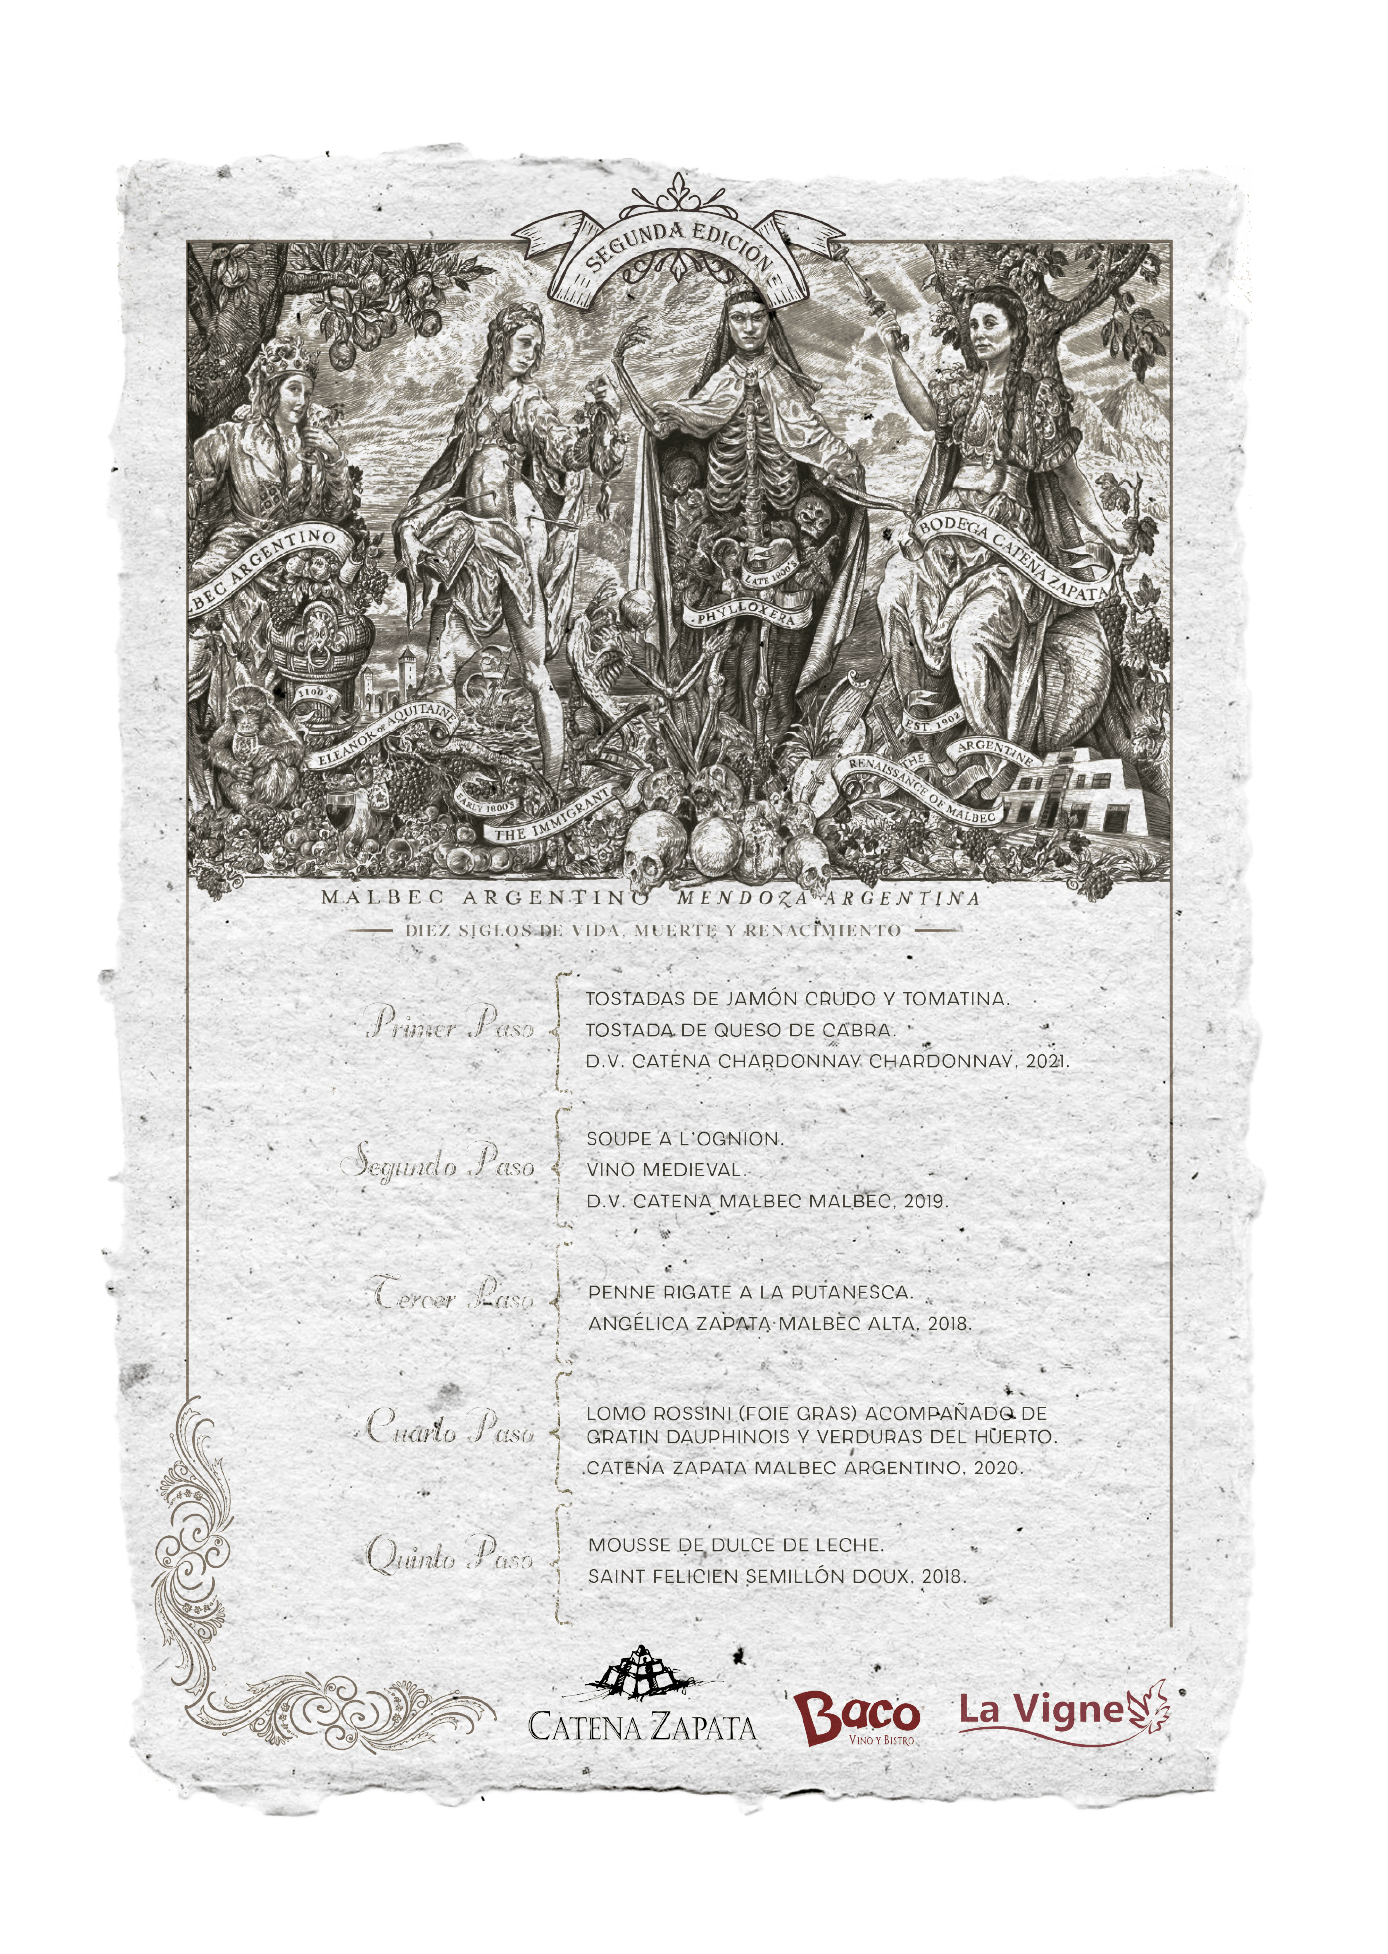 SEGUNDA EDICIÓN
BEC ARGENTINO
1100's
ELEANOR OF AQUITAINE
EARLY 1800's
THE IMMIGRANT
LATE 1800's
PHYLLOXERA
BODEGA CATENA ZAPATA
EST. 1902
THE
RENAISSANCE OF MALBEC
ARGENTINE
MALBEC ARGENTINO MENDOZA ARGENTINA
DIEZ SIGLOS DE VIDA, MUERTE Y RENACIMIENTO
Primer Paso
TOSTADAS DE JAMÓN CRUDO Y TOMATINA.
TOSTADA DE QUESO DE CABRA.
D.V. CATENA CHARDONNAY CHARDONNAY, 2021.
Segundo Paso
SOUPE A L'OGNION.
VINO MEDIEVAL.
D.V. CATENA MALBEC MALBEC, 2019.
Tercer Paso
PENNE RIGATE A LA PUTANESCA.
ANGÉLICA ZAPATA MALBEC ALTA, 2018.
Cuarto Paso
LOMO ROSSINI (FOIE GRAS) ACOMPAÑADO DE
GRATIN DAUPHINOIS Y VERDURAS DEL HUERTO.
CATENA ZAPATA MALBEC ARGENTINO, 2020.
Quinto Paso
MOUSSE DE DULCE DE LECHE.
SAINT FELICIEN SEMILLÓN DOUX, 2018.
CATENA ZAPATA
Baco
VINO Y BISTRO
La Vigne